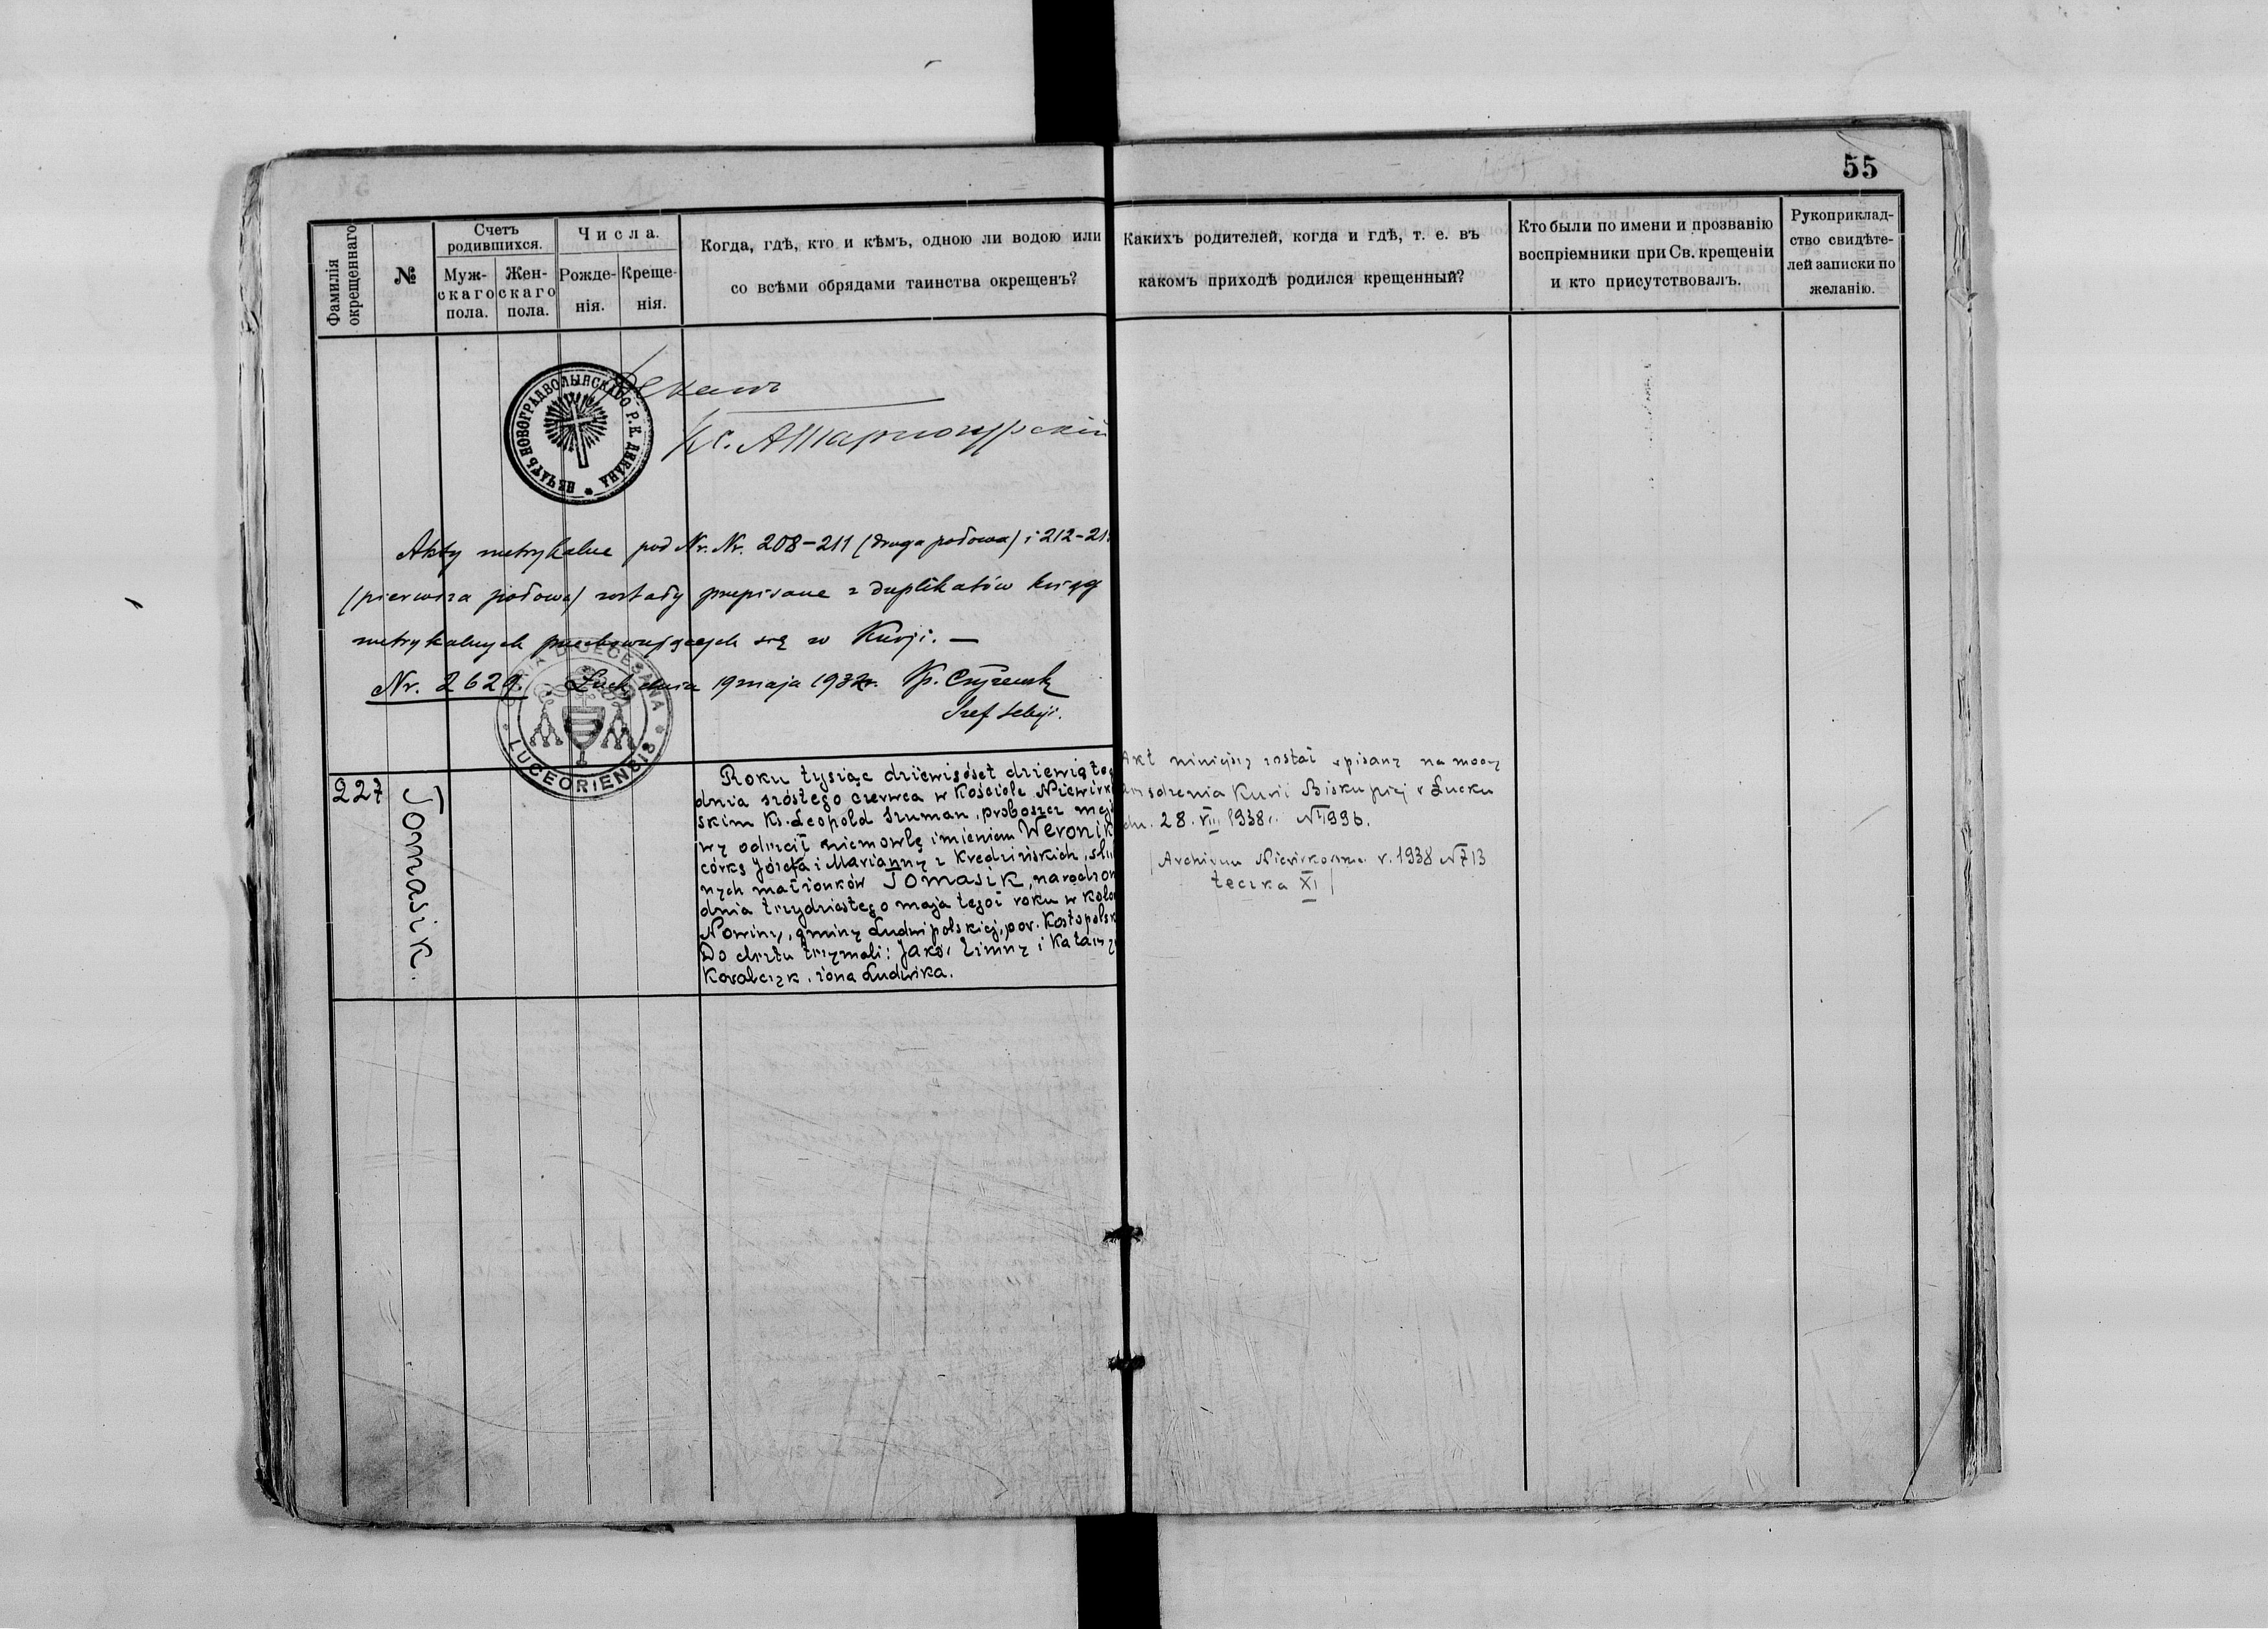 55
Фамилія окрещеннаго
№
Счетъ родившихся.
Муж-скаго пола.
Жен-скаго пола.
Числа.
Рожде-нія.
Креще-нія.
Когда, гдѣ, кто и кѣмъ, одною ли водою или
со всѣми обрядами таинства окрещенъ?
Какихъ родителей, когда и гдѣ, т. е. въ
какомъ приходѣ родился крещенный?
Кто были по имени и прозванію
воспріемники при Св. крещеніи
и кто присутствовалъ.
Рукоприклад-
ство свидѣте-
лей записки по
желанію.
ПЕЧАТЬ НОВОГРАДВОЛЫНСКАГО Р. К. ДЕКАНА
Деканъ
Кс. А Тарногурскій
Akty metrykalne pod Nr. Nr. 208-211 (druga połowa) i 212-21
(pierwsza połowa) zostały przepisane z duplikatów ksiąg
metrykalnych przechowujących się w Kurji. —
Nr. 2629. Łuck dnia 19 maja 1932r.
Szef
CURIA DIOECESANA LUCEORIENSIS
227
Tomasik.
Roku tysiąc dziewięćset dziewiąteg
dnia szóstego czerwca w Kościele Niewirko
skim Ks. Leopold Szuman, proboszcz miejs
wy ochrzcił niemowlę imieniem Weronik
córkę Józefa i Marianny z Kredzińskich, ślu
nych małżonków Tomasik, narodzon
dnia trzydziestego maja tegoż roku w kolo
Nowiny, gminy Ludwipolskiej, pow. Kostopolsk
Do chrztu trzymali: Jakób Zimny i Katarzy
Kowalczyk, żona Ludwika.
Akt niniejszy został wpisany na mocy
zarządzenia Kurii Biskupiej w Łucku
dn. 28. VIII 1938r. № 1996.
/Archiwum Niewirkowskie r. 1938 № 713
teczka XI/